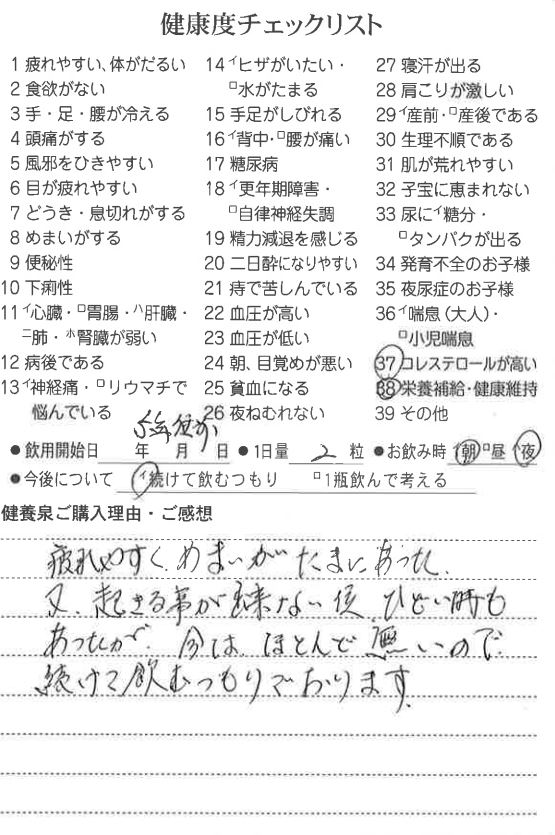 健康度チェックリスト
1 疲れやすい、体がだるい
2 食欲がない
3 手・足・腰が冷える
4 頭痛がする
5 風邪をひきやすい
6 目が疲れやすい
7 どうき・息切れがする
8 めまいがする
9 便秘性
10 下痢性
11 イ心臓・ロ胃腸・ハ肝臓・
ニ肺・ホ腎臓が弱い
12 病後である
13 イ神経痛・ロリウマチで
悩んでいる
14 イヒザがいたい・
ロ水がたまる
15 手足がしびれる
16 イ背中・ロ腰が痛い
17 糖尿病
18 イ更年期障害・
ロ自律神経失調
19 精力減退を感じる
20 二日酔になりやすい
21 痔で苦しんでいる
22 血圧が高い
23 血圧が低い
24 朝、目覚めが悪い
25 貧血になる
26 夜ねむれない
27 寝汗が出る
28 肩こりが激しい
29 イ産前・ロ産後である
30 生理不順である
31 肌が荒れやすい
32 子宝に恵まれない
33 尿にイ糖分・
ロタンパクが出る
34 発育不全のお子様
35 夜尿症のお子様
36 イ喘息(大人)・
ロ小児喘息
37 コレステロールが高い
38 栄養補給・健康維持
39 その他
5年位前
●飲用開始日 年 月 日 ●1日量 2 粒 ●お飲み時 イ朝 ロ昼 ハ夜
●今後について イ続けて飲むつもり ロ1瓶飲んで考える
健養泉ご購入理由・ご感想
疲れやすく、めまいがたまにあった。
又、起きる事が出来ない位、ひどい時も
あったが、今は、ほとんど無いので
続けて飲むつもりでおります。